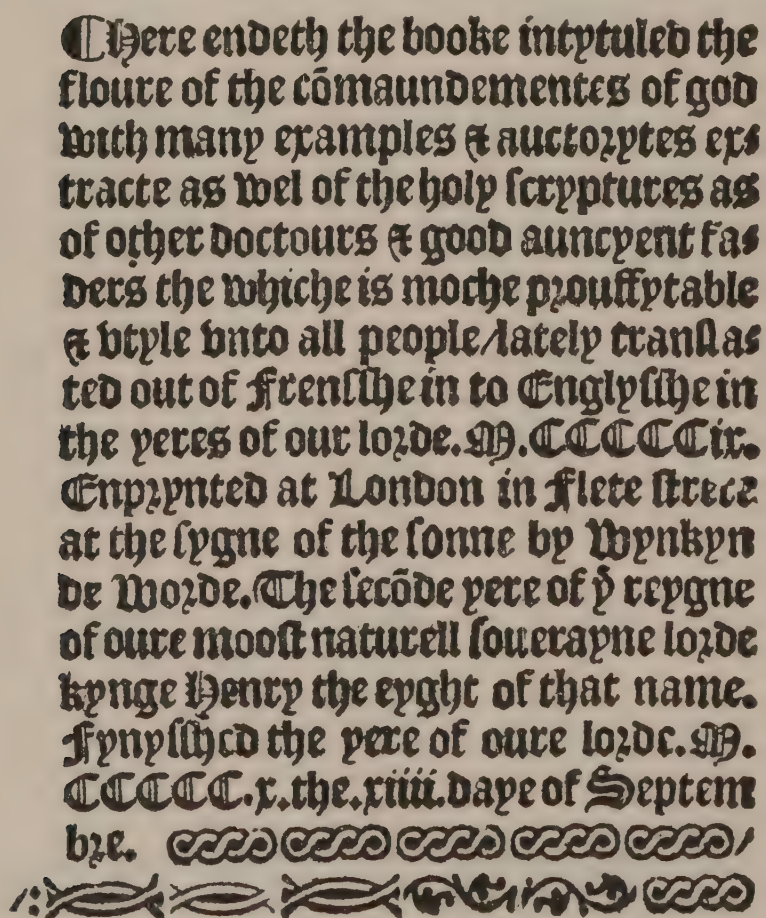 ¶Here endeth the booke intytuled the
floure of the cōmaundementes of god
with many examples & auctorytes ex⸗
tracte as wel of the holy ſcryptures as
of other doctours & good auncyent fa⸗
ders the whiche is moche prouffytable
& vtyle vnto all people/lately tranſla⸗
ted out of Frenſſhe in to Englyſſhe in
the yeres of our lorde.M.CCCCCix.
Enprynted at London in Flete ſtrete
at the ſygne of the ſonne by Wynkyn
de Worde.The ſecōde yere of yͤ reygne
of oure mooſt naturell ſouerayne lorde
kynge Henry the eyght of that name.
Fynyſſhed the yere of oure lorde.M.
CCCCC.x.the.xiiii.daye of Septem
bre.